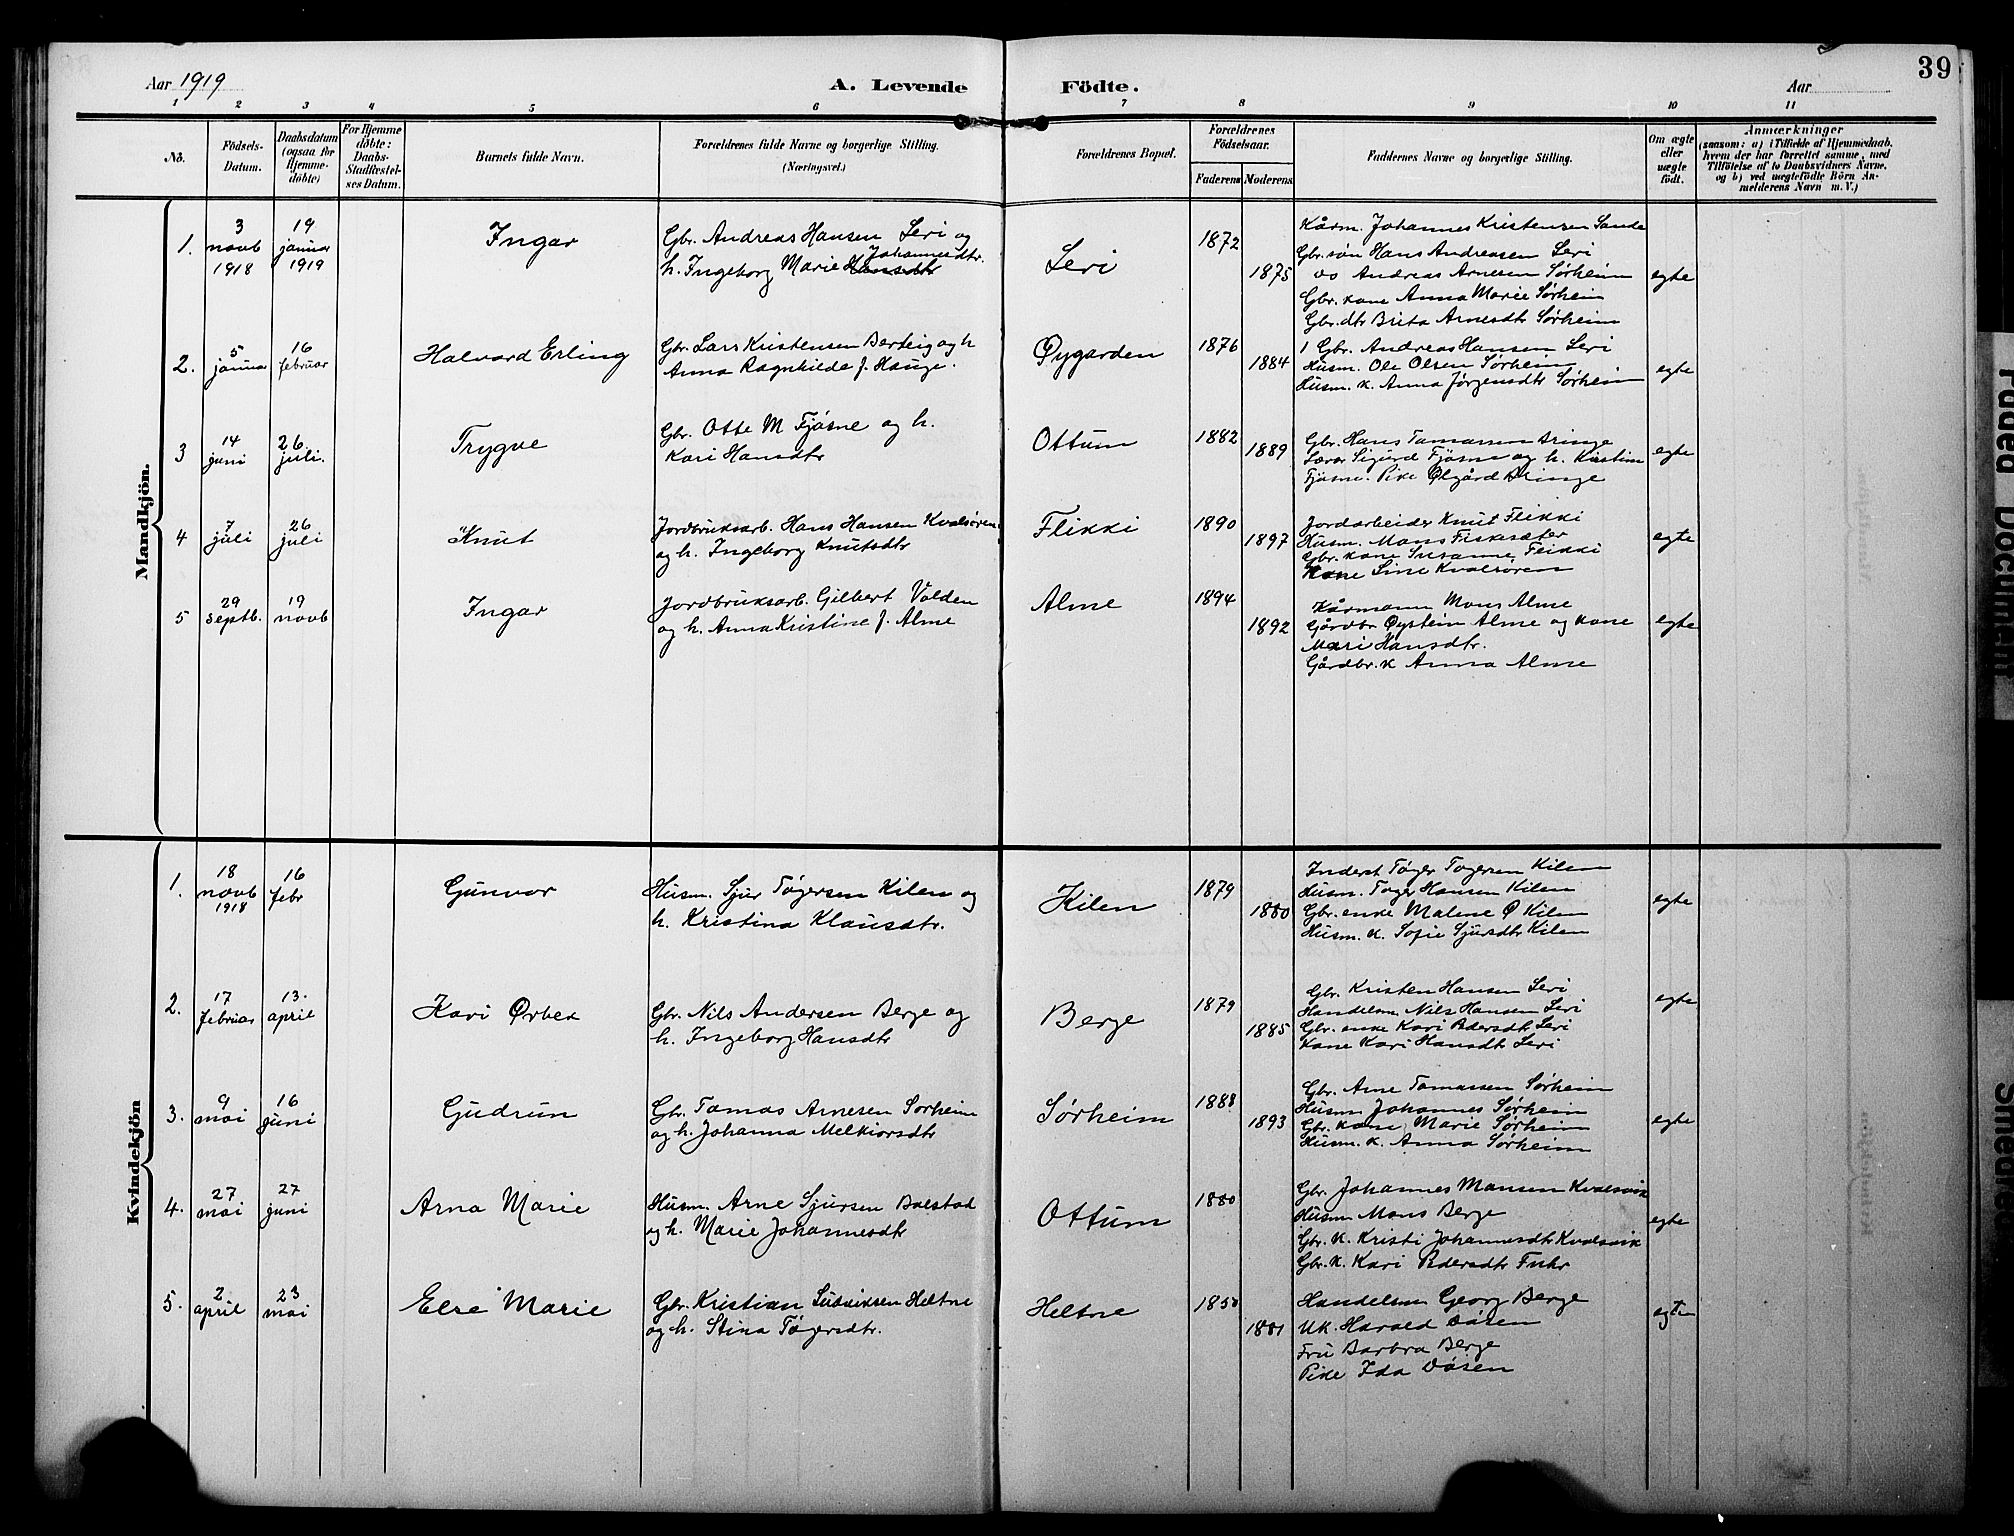 39
Aar 1919
A. Levende Födte.
Aar
1 2 3 4 5 6 7 8 9 10 11
No.
Födsels-Datum.
Daabsdatum (ogsaa for Hjemme-döbte)
For Hjemme döbte: Daabs-Stadfæstel-ses Datum.
Barnets fulde Navn.
Forældrenes fulde Navne og borgerlige Stilling.
(Næringsvei.)
Forældrenes Bopæl.
Forældrenes Födselsaar.
Faderens Moderens
Faddernes Navne og borgerlige Stilling.
Om ægte eller uægte födt.
Anmærkninger
(saasom: a) i Tilfælde af Hjemmedaab, hvem der har forrettet samme, med Tilföielse af to Daabsvidners Navne, og b) ved uægtefödte Börn An-melderens Navn m.V.)
Mandkjön.
1. 3 novb 1918
19 januar 1919
Ingar
Gbr. Andreas Hansen Leri og
h. Ingeborg Marie Hansdtr Johannesdtr.
Leri
1872
1875
Kårm. Johannes Kristensen Sande
Gbr. søn Hans Andreasen Leri
do Andreas Arnesen Sørheim
Gbr. kone Anna Marie Sørheim
Gbr. dtr Brita Arnesdtr Sørheim
egte
2. 5 januar
16 februar
Halvard Erling
Gbr. Lars Kristensen Berteig og h
Anna Ragnhilde J. Hauge.
Øygarden
1876
1884
1 Gbr. Andreas Hansen Leri
Husm. Ole Olsen Sørheim
Husm. k. Anna Jørgensdtr Sørheim
egte
3 14 juni
26 juli.
Trygve
Gbr. Otte M Fjøsne og h.
Kari Hansdtr
Ottum
1882
1889
Gbr. Hans Tamassen
Lærer Sigurd Fjøsne og h. Kirstine
Fjøsne. Pike
egte
4 7 juli
26 juli
Knut
Jordbruksarb. Hans Hansen Kvalsøren
og h. Ingeborg Knutsdtr
Flikki
1890
1897
Jordarbeider Knut Flikki
Husm. Mons Fiskesæter
Gbr. kone Susanne Flikki
Kone Sine Kvalsøren
egte
5 29 septb.
19 novb
Ingar
Jordbruksarb. Gilbert Volden
og h. Anna Kristine J. Alme
Alme
1894
1892
Kårmann Mons Alme
Gårdbr Øystein Alme og kone
Mari Hansdtr.
Gårdbr. k Anna Alme
egte
Kvindekjön
1. 18 novb 1918
16 febr
Gunvor
Husm. Sjur Tøgersen Kilen og
h. Kristina Klausdtr.
Kilen
1879
1880
Inderst Tøger Togersen Kilen
Husm. Toger Hansen Kilen
Gbr. enke Malene Ø Kilen
Husm. k. Sofie Sjursdtr Kilen
egte
2. 17 februar
13. april
Kari Ørbek
Gbr. Nils Andersen Berge og
h. Ingeborg Hansdtr
Berge
1879
1885
Gbr. Kristen Hansen Leri
Handelsm Nils Hansen Leri
Gbr. enke Kari Pedersdtr Leri
Kone Kari Hansdtr Leri
egte
3. 9 mai
16 juni
Gudrun
Gbr. Tamas Arnesen Sørheim
og h. Johanna Melkiorsdtr
Sørheim
1888
1893
Gbr. Arne Tamassen Sørheim
Husm. Johannes Sørheim
Gbr. kone Marie Sørheim
Husm. k. Anna Sørheim
egte
4. 27 mai
27 juni
Arna Marie
Husm. Arne Sjursen Bolstad
og h. Marie Johannesdtr
Ottum
1880
Gbr. Johannes Monsen Kvalsvik
Husm Mons Berge
Gbr. k. Kristi Johannesdtr Kvalsvik
Gbr. k. Kari Pedersdtr Fuhr
egte
5. 2 april
23 mai
Else Marie
Gbr. Kristian Ludviksen Heltne
og h. Stina Tøgersdtr.
Heltne
1881
Handelsm Georg Berge
Uk. Harald Døsen
Fru Barbra Berge
Pike Ida Døsen